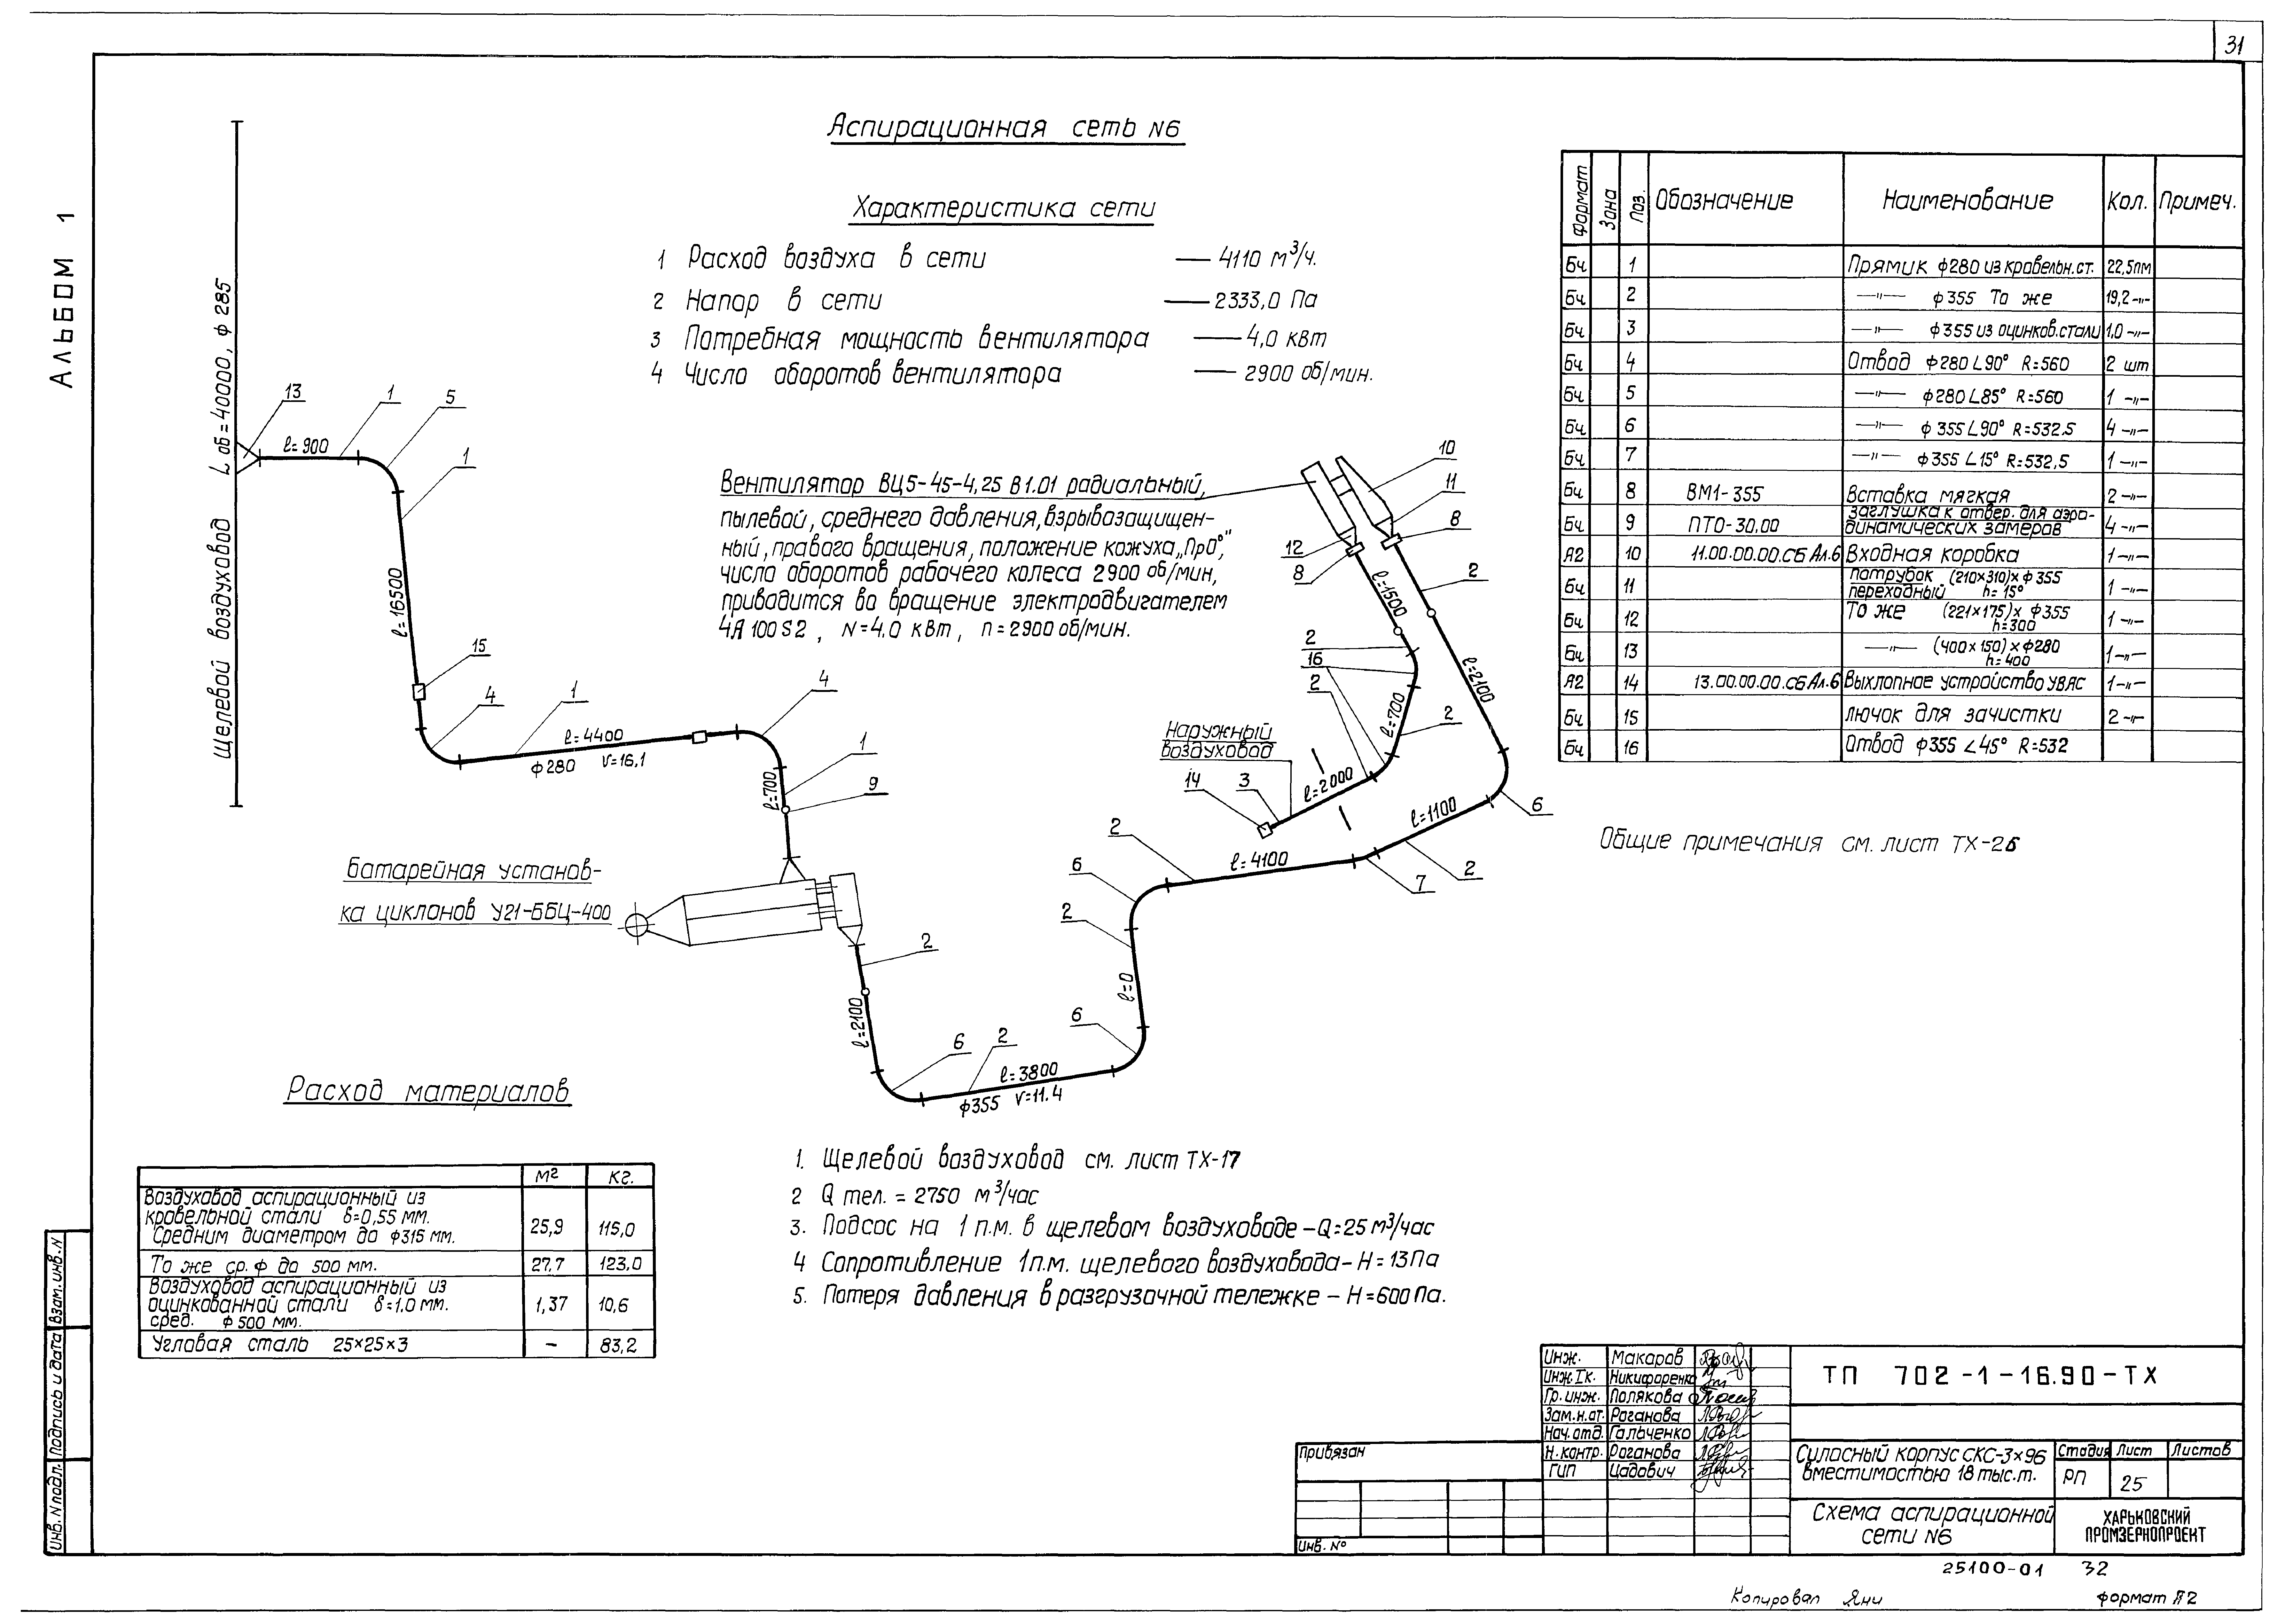 31
АЛЬБОМ 1
Аспирационная сеть №6
Характеристика сети
1 Расход воздуха в сети — 4110 м³/ч.
2 Напор в сети — 2333,0 Па
3 Потребная мощность вентилятора — 4,0 кВт
4 Число оборотов вентилятора — 2900 об/мин.
Щелевой воздуховод L об=40000, ф 285
13
ℓ=900
1
5
1
ℓ=16500
15
4
1
ℓ=4400
ф280 V=16,1
4
1
ℓ=700
9
Вентилятор ВЦ5-45-4,25 В1.01 радиальный,
пылевой, среднего давления, взрывозащищен-
ный, правого вращения, положение кожуха „Пр0°",
число оборотов рабочего колеса 2900 об/мин,
приводится во вращение электродвигателем
4А 100S2, N=4.0 кВт, n=2900 об/мин.
10
11
8
12
8
2
ℓ=1500
2
16
2
ℓ=2100
ℓ=700
2
Наружный
воздуховод
14
3
ℓ=2000
ℓ=1100
6
2
6
ℓ=4100
7
2
2
ℓ=0
6
Батарейная установ-
ка циклонов У21-ББЦ-400
2
ℓ=2100
6
2
ℓ=3800
ф355 V=11.4
Формат Зона Поз. Обозначение Наименование Кол. Примеч.
Бч 1 Прямик ф280 из кровельн.ст. 22,5пм
Бч 2 —"— ф355 То же 19,2 -"-
Бч 3 —"— ф355 из оцинков.стали 1,0 -"-
Бч 4 Отвод ф280 ∠90° R=560 2 шт
Бч 5 —"— ф280 ∠85° R=560 1 -"-
Бч 6 —"— ф355 ∠90° R=532.5 4 -"-
Бч 7 —"— ф355 ∠15° R=532,5 1 -"-
Бч 8 ВМ1-355 Вставка мягкая 2 -"-
Бч 9 ПТО-30.00 Заглушка к отвер. для аэро-
динамических замеров 4 -"-
А2 10 11.00.00.00.СБ Ал.6 Входная коробка 1 -"-
Бч 11 патрубок (210×310)×ф355
переходный h=15° 1 -"-
Бч 12 То же (221×175)×ф355
h=300 1 -"-
Бч 13 —"— (400×150)×ф280
h=400 1 -"-
А2 14 13.00.00.00.СБ Ал.6 Выхлопное устройство УВАС 1 -"-
Бч 15 лючок для зачистки 2 -"-
Бч 16 Отвод ф355 ∠45° R=532
Общие примечания см. лист ТХ-26
Расход материалов
м² кг.
Воздуховод аспирационный из
кровельной стали δ=0,55 мм.
Средним диаметром до ф315 мм. 25,9 115,0
То же ср. ф до 500 мм. 27,7 123,0
Воздуховод аспирационный из
оцинкованной стали δ=1.0 мм.
сред. ф 500 мм. 1,37 10,6
Угловая сталь 25×25×3 — 83,2
1. Щелевой воздуховод см. лист ТХ-17
2 Q тел. = 2750 м³/час
3. Подсос на 1 п.м. в щелевом воздуховоде – Q=25 м³/час
4 Сопротивление 1п.м. щелевого воздуховода – Н=13Па
5. Потеря давления в разгрузочной тележке – Н=600Па.
Инв. N подл. Подпись и дата Взам. инв. N
Привязан
Инв. №
Инж. Макаров
Инж. I к. Никифоренко
Гр. инж. Полякова
Зам.н.от. Роганова
Нач. отд. Гальченко
Н. контр. Роганова
ГИП Цадович
ТП 702-1-16.90-ТХ
Силосный корпус СКС-3×96
вместимостью 18 тыс.т.
Стадия Лист Листов
РП 25
Схема аспирационной
сети №6
ХАРЬКОВСКИЙ
ПРОМЗЕРНОПРОЕКТ
25100-01 32
Копировал Яни формат А2